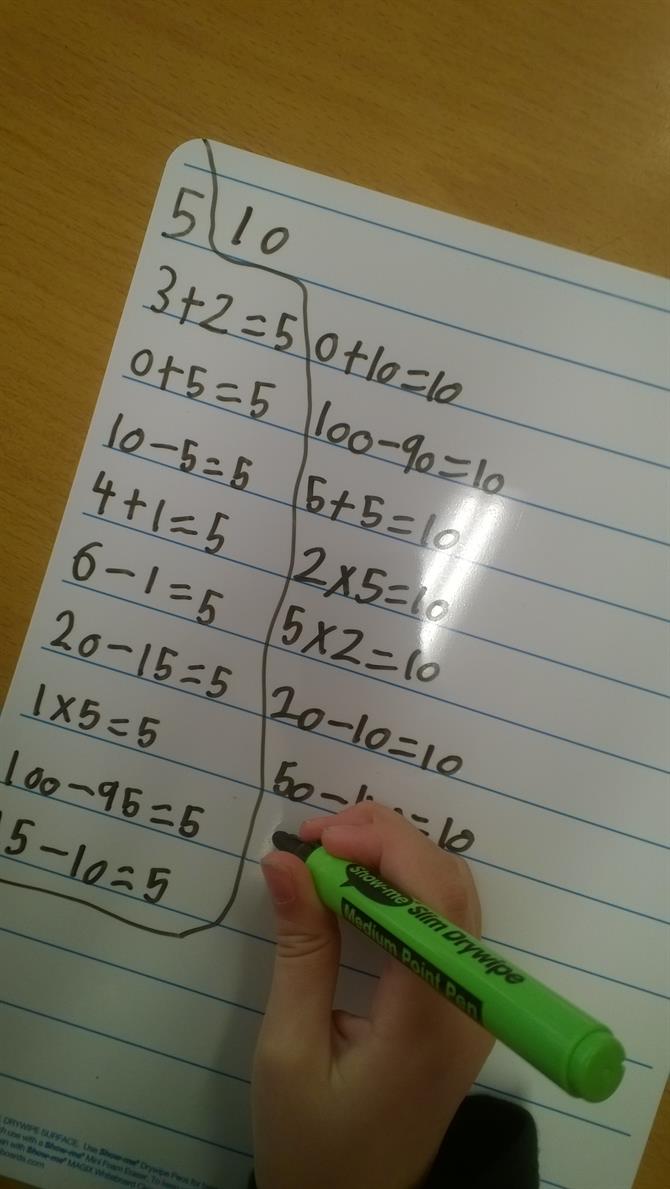 5
3+2=5
0+5=5
10-5=5
4+1=5
6-1=5
20-15=5
1x5=5
100-95=5
15-10=5
10
0+10=10
100-90=10
5+5=10
2x5=10
5x2=10
20-10=10
50- =10
Show-me Slim Drywipe
Medium Point Pen
DRYWIPE SURFACE. Use Show-me Drywipe Pens for
use with a Show-me Mini Foam Eraser. To
with Show-me MAGIX Whiteboard
boards.com